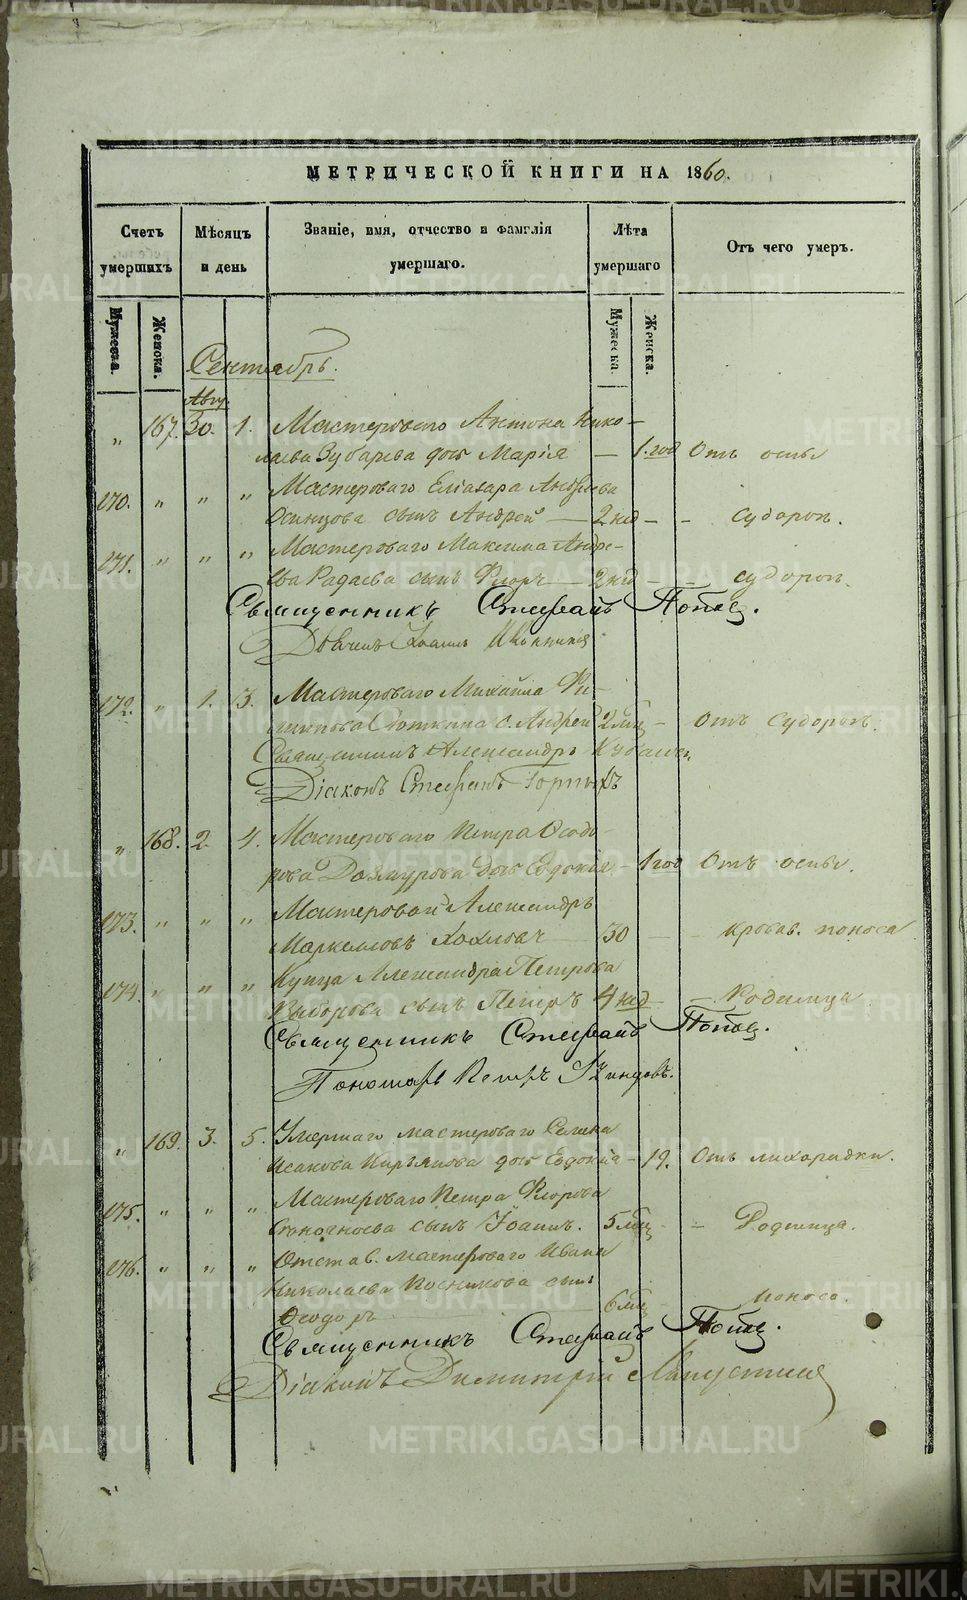 МЕТРИЧЕСКОЙ КНИГИ НА 1860.
Счетъ умершихъ
Мѣсяцъ и день
Званіе, имя, отчество и фамилія умершаго.
Лѣта умершаго
Отъ чего умеръ.
Мужеска.
Женска.
Мужеска
Женска.
Сентябрь.
Авгу.
" 167. 30. 1. Мастероваго Антона Нико-
лаева Зубарева дочь Марія — 1. год Отъ оспы
170. " " " Мастероваго Еліазара Андреева
Осинцова сынъ Андрей — 2 нед - - судорог.
171. " " " Мастероваго Максима Андре-
ева Радаева сынъ — 2 нед - - судорог.
Священникъ Стефанъ Попов.
Іоаннъ
172. " 1. 3. Мастероваго Михаила Фи-
липпова с. Андрей 2 мѣс - Отъ судорог.
Священникъ Александръ
Діаконъ Стефанъ Горныхъ
" 168. 2. 4. Мастероваго Петра Ѳедо-
рова дочь Евдокія - 1 год Отъ оспы.
173. " " " Мастеровой Александръ
Маркелловъ Хохловъ 30 - - кровав. поноса
174. " " " Купца Александра Петрова
сынъ Петръ 4 нед - - Родимца
Священникъ Стефанъ Попов.
Пономарь Петръ
" 169. 3. 5. Умершаго мастероваго Семена
Исакова Кирьянова дочь Евдокія - 19. Отъ лихорадки.
175. " " " Мастероваго Петра Фролова
сынъ Іоаннъ. 5 мѣс - - Родимца.
176. " " " Отстав. мастероваго Ивана
Николаева Посникова сынъ
Ѳеодоръ 6 мѣс поноса.
Священникъ Стефанъ Попов.
Діаконъ Димитрій Лапустинъ
METRIKI.GASO-URAL.RU